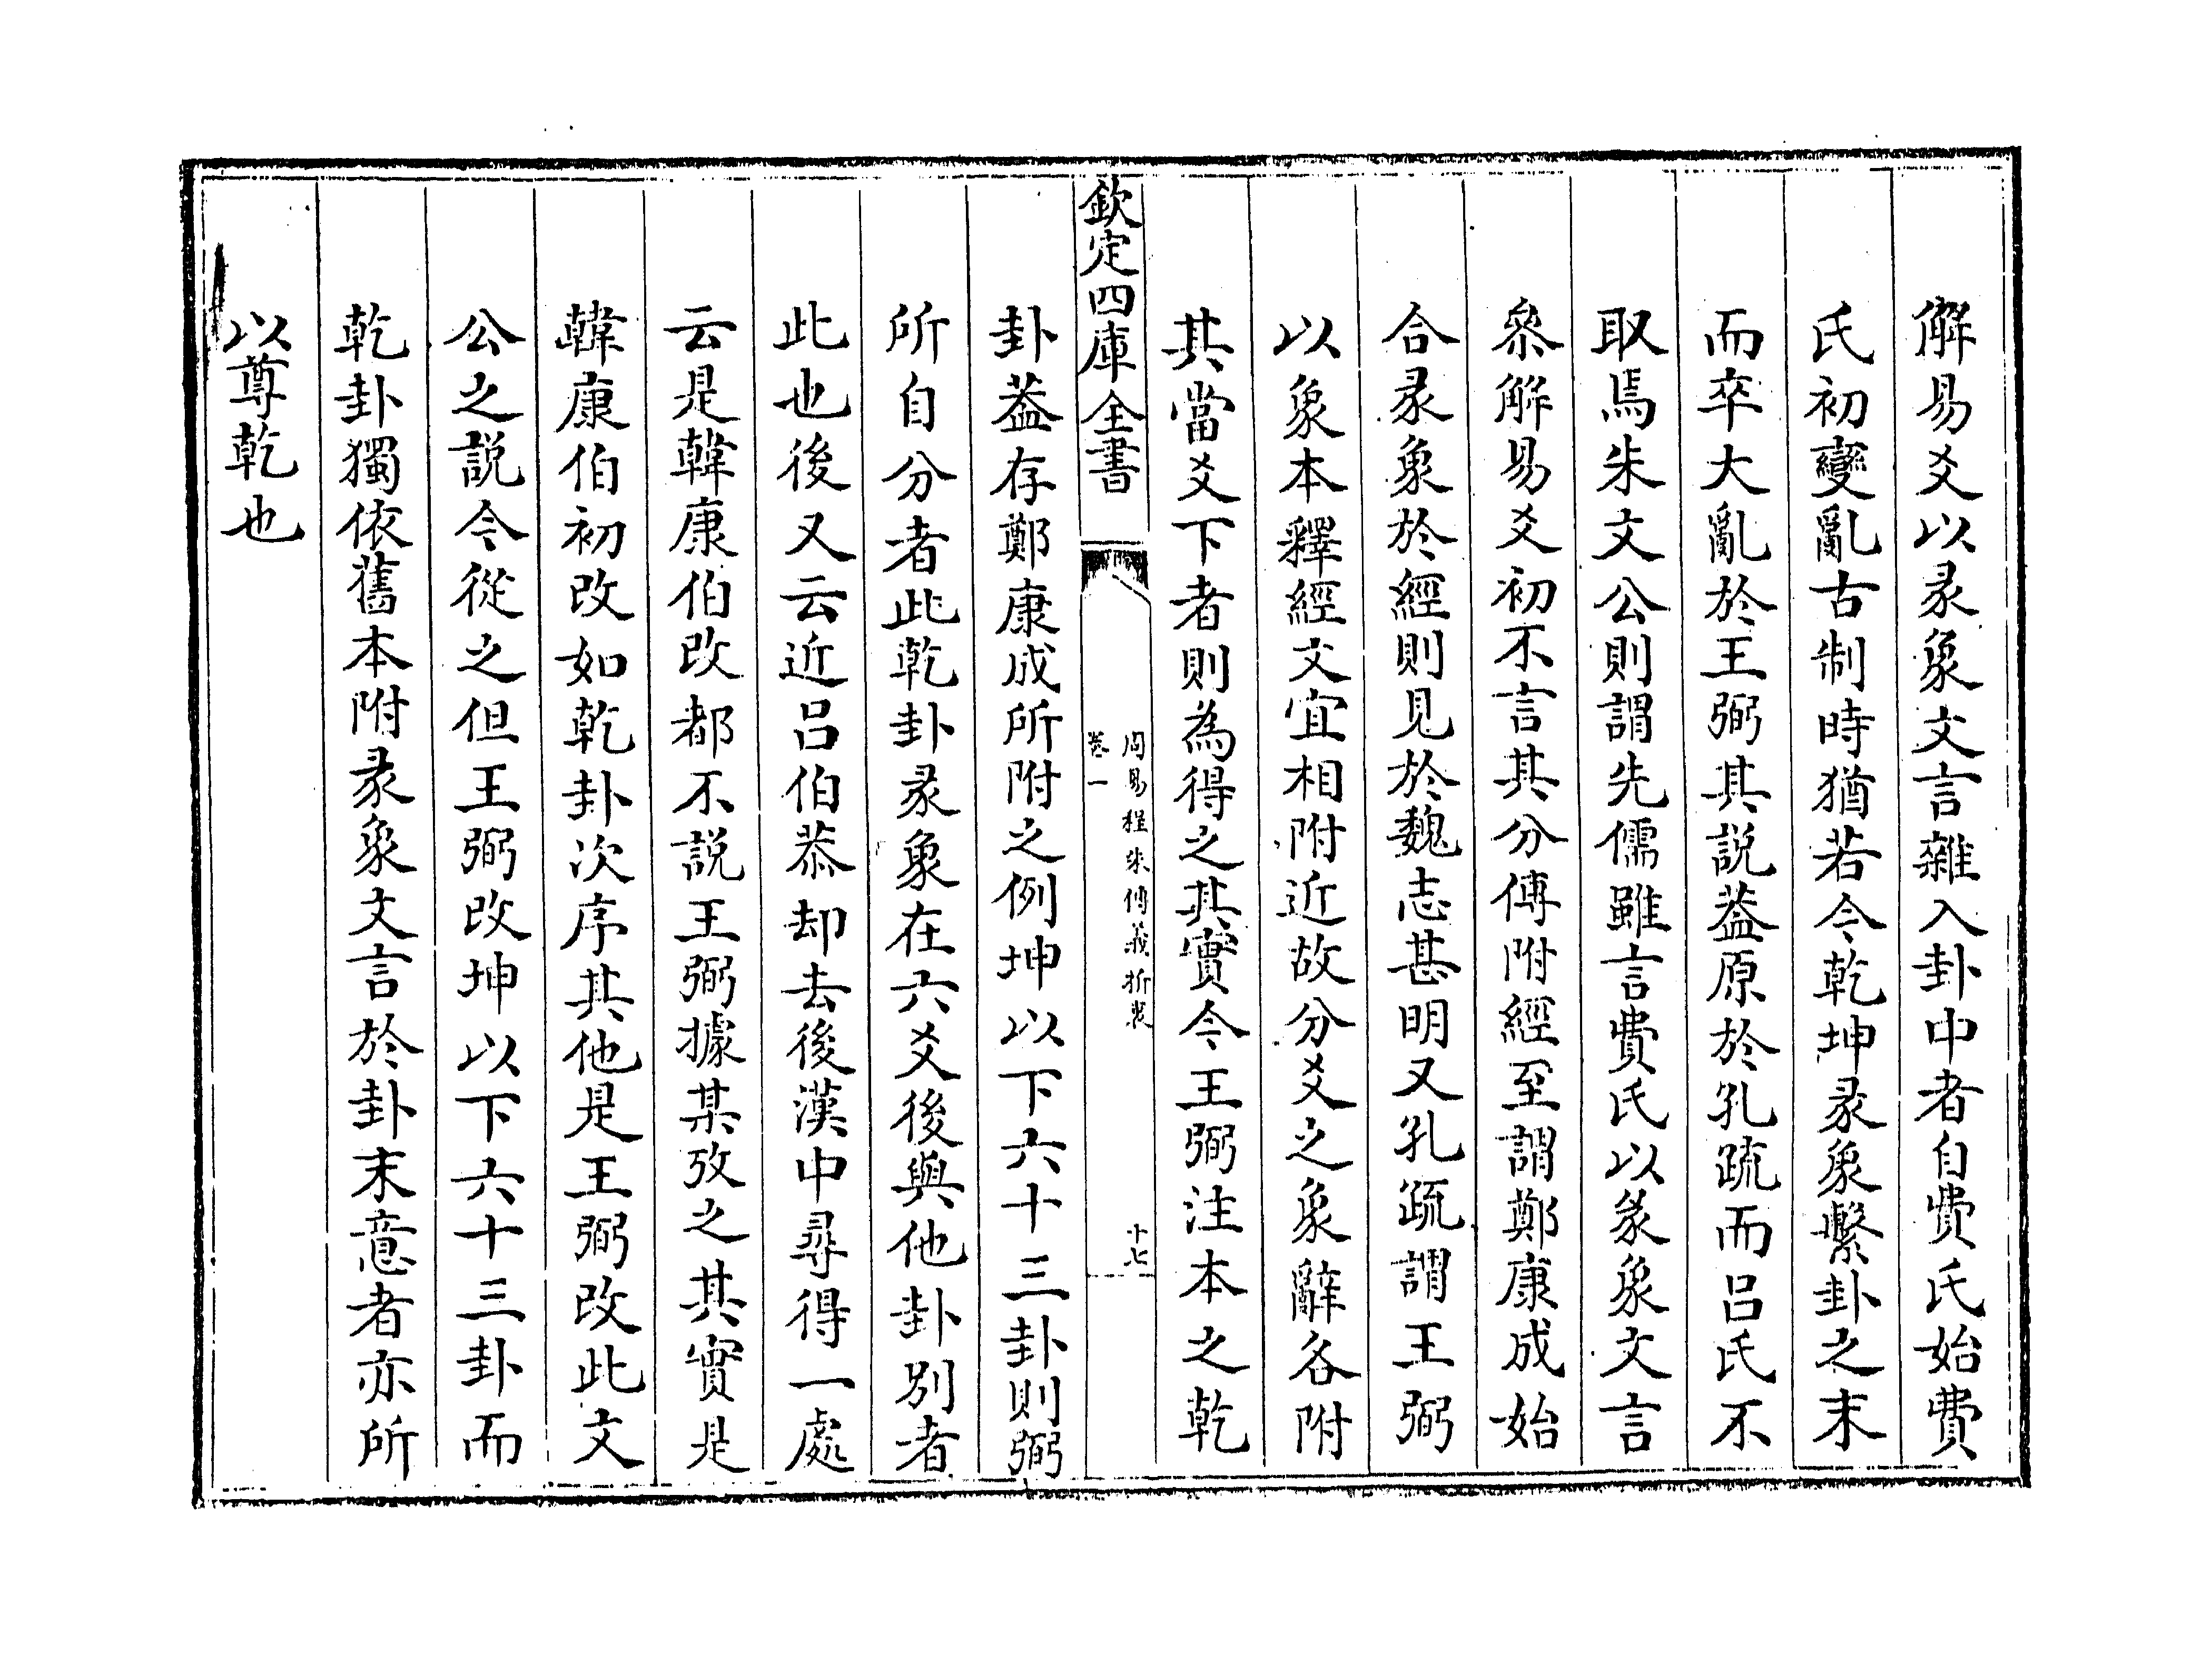 解易爻以彖象文言雜入卦中者自費氏始費
氏初變亂古制時猶若今乾坤彖象繫卦之末
而卒大亂於王弼其說葢原於孔疏而吕氏不
取焉朱文公則謂先儒雖言費氏以彖象文言
叅解易爻初不言其分傳附經至謂鄭康成始
合彖象於經則見於魏志甚明又孔疏謂王弼
以象本釋經文宜相附近故分爻之象辭各附
其當爻下者則為得之其實今王弼注本之乾
欽定四庫全書
周易程朱傳義折衷
卷一
十七
卦葢存鄭康成所附之例坤以下六十三卦則弼
所自分者此乾卦彖象在六爻後與他卦別者
此也後又云近吕伯恭却去後漢中尋得一處
云是韓康伯改都不說王弼據某攷之其實是
韓康伯初改如乾卦次序其他是王弼改此文
公之說今從之但王弼改坤以下六十三卦而
乾卦獨依舊本附彖象文言於卦末意者亦所
以尊乾也